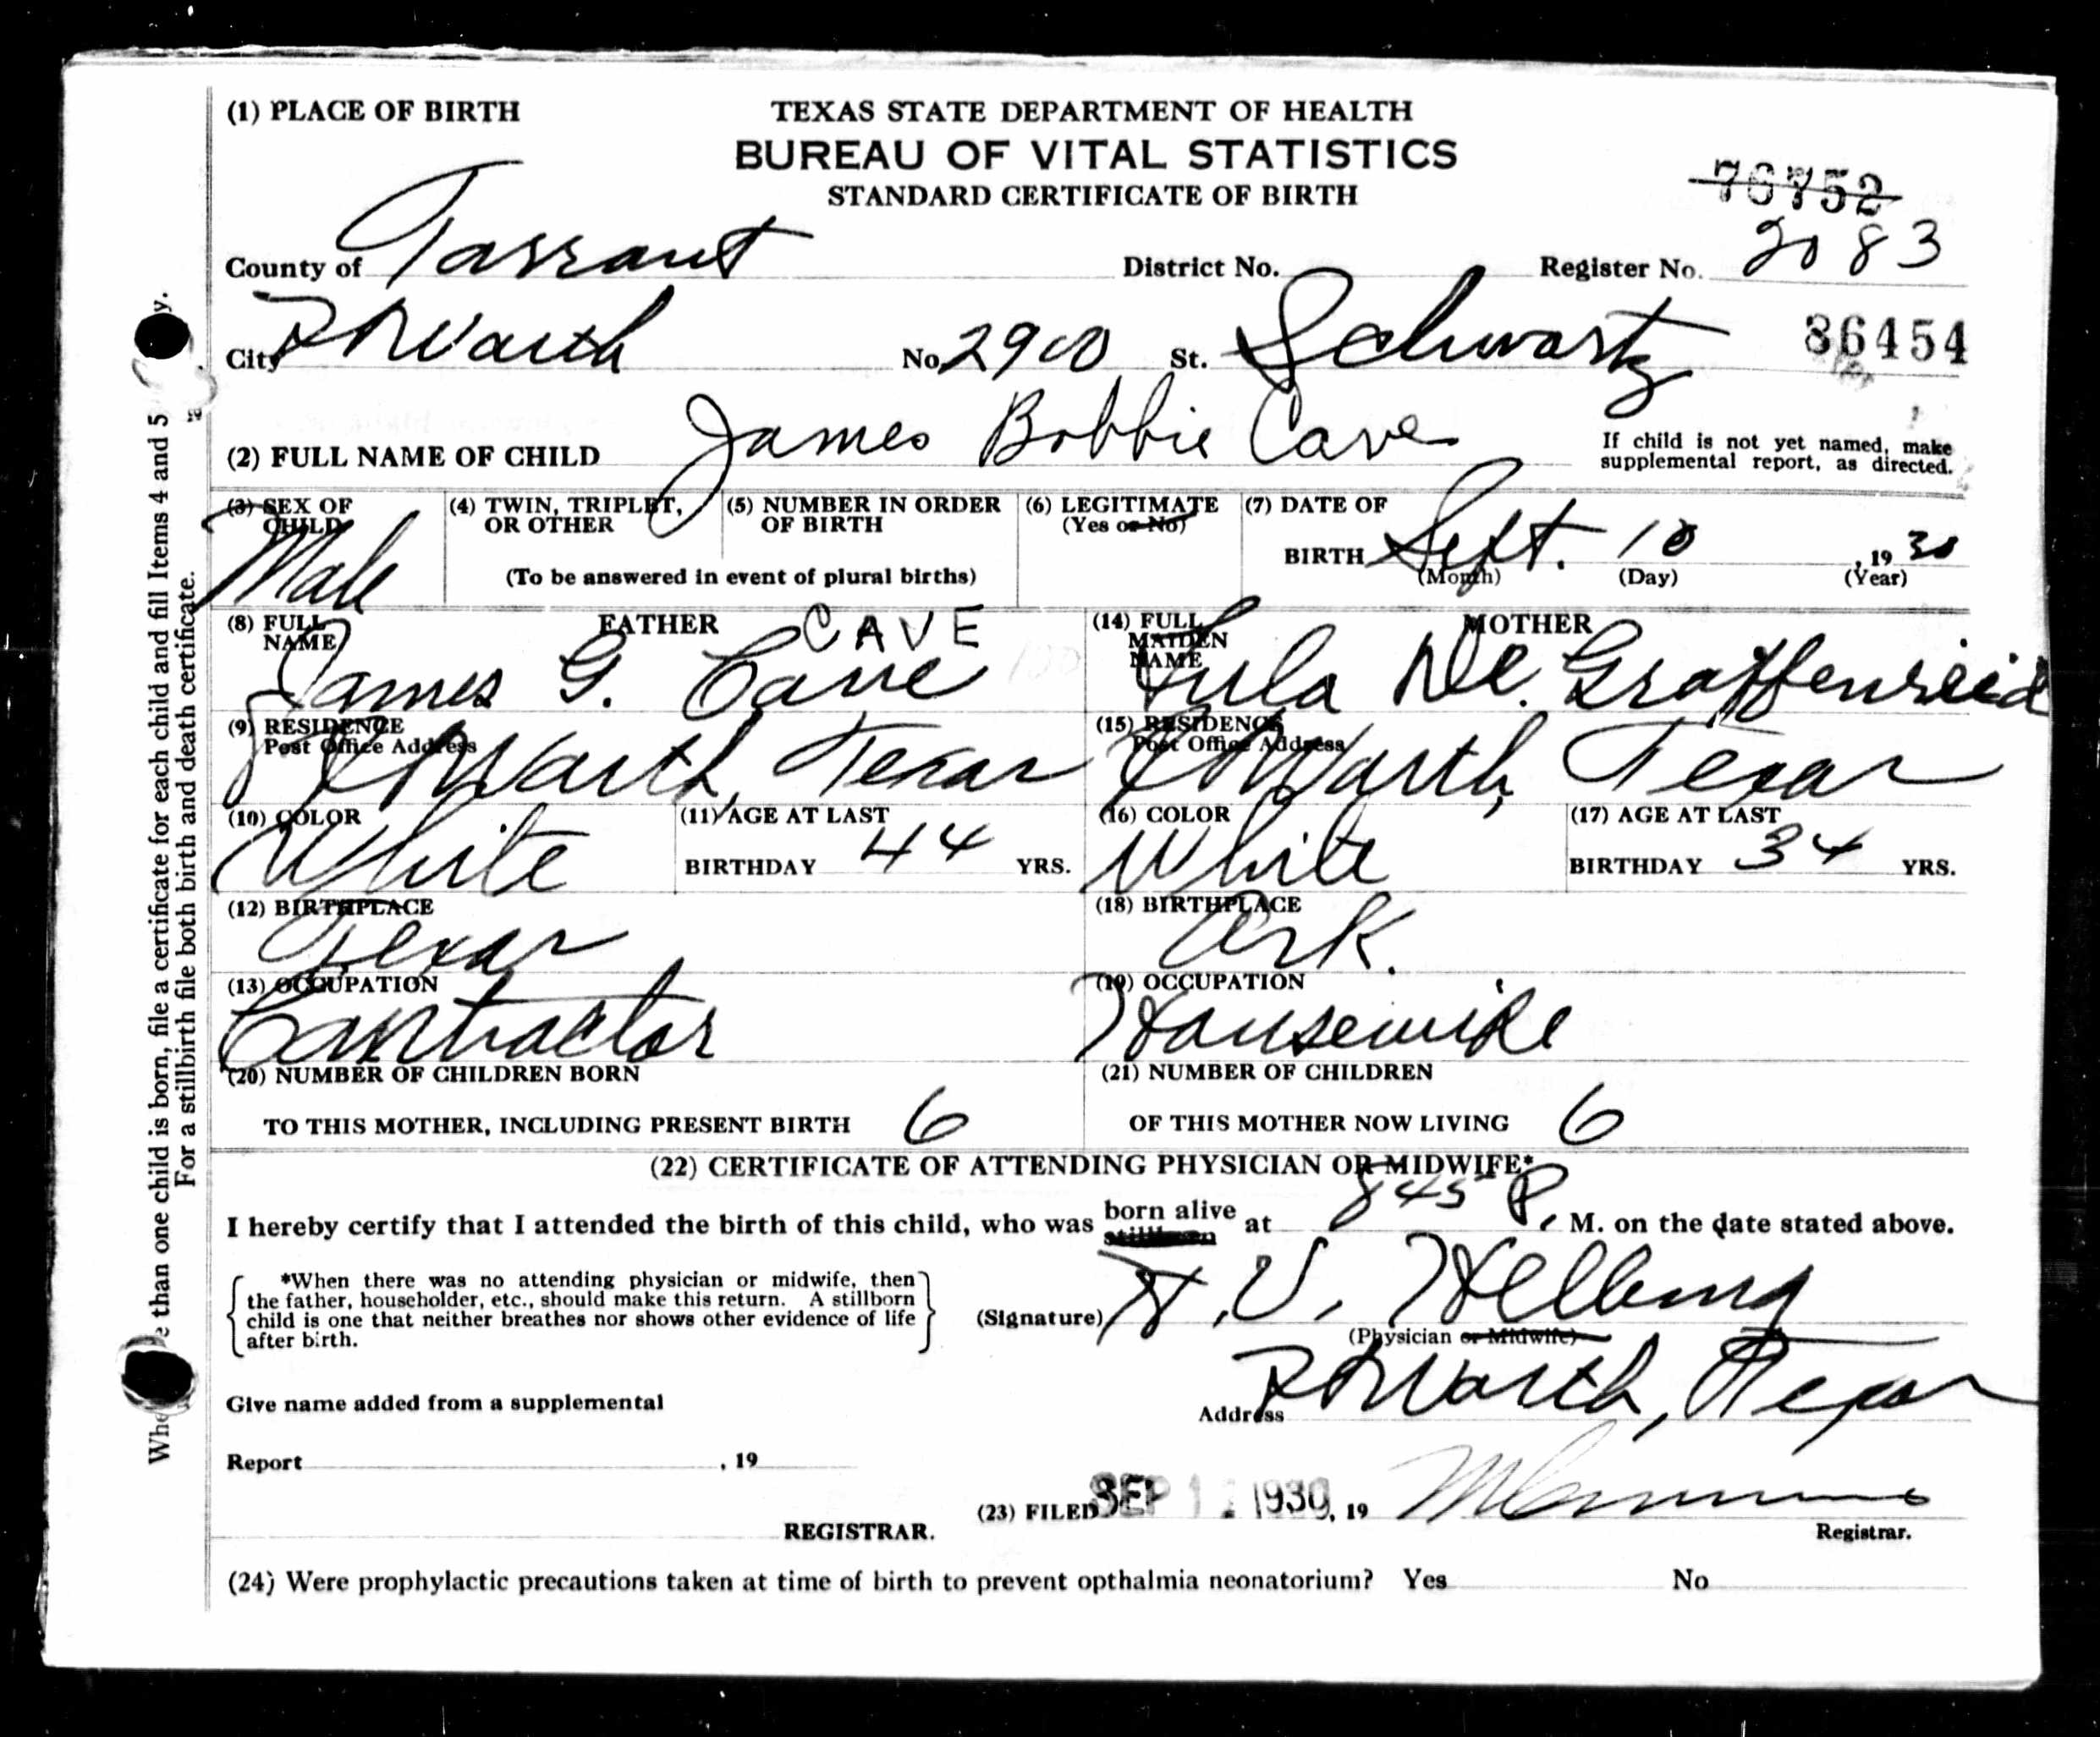 (1) PLACE OF BIRTH
TEXAS STATE DEPARTMENT OF HEALTH
BUREAU OF VITAL STATISTICS
STANDARD CERTIFICATE OF BIRTH
76752
County of Tarrant District No. Register No. 2083
City Ft Worth No. 2900 St. Schwartz
36454
(2) FULL NAME OF CHILD James Bobbie Cave
If child is not yet named, make
supplemental report, as directed.
(3) SEX OF CHILD Male
(4) TWIN, TRIPLET, OR OTHER
(5) NUMBER IN ORDER OF BIRTH
(To be answered in event of plural births)
(6) LEGITIMATE (Yes or No)
(7) DATE OF BIRTH Sept. 10, 1930
(Month) (Day) (Year)
FATHER CAVE
(8) FULL NAME James G. Cave
MOTHER
(14) FULL MAIDEN NAME Lula De Graffenreid
(9) RESIDENCE Post Office Address Ft Worth, Texas
(15) RESIDENCE Post Office Address Ft Worth, Texas
(10) COLOR White
(11) AGE AT LAST BIRTHDAY 44 YRS.
(16) COLOR White
(17) AGE AT LAST BIRTHDAY 34 YRS.
(12) BIRTHPLACE Texas
(18) BIRTHPLACE Ark.
(13) OCCUPATION Contractor
(19) OCCUPATION Housewife
(20) NUMBER OF CHILDREN BORN
TO THIS MOTHER, INCLUDING PRESENT BIRTH 6
(21) NUMBER OF CHILDREN
OF THIS MOTHER NOW LIVING 6
(22) CERTIFICATE OF ATTENDING PHYSICIAN OR MIDWIFE*
I hereby certify that I attended the birth of this child, who was born alive stillborn at 845 P. M. on the date stated above.
*When there was no attending physician or midwife, then
the father, householder, etc., should make this return. A stillborn
child is one that neither breathes nor shows other evidence of life
after birth.
(Signature) V. Helbing
(Physician or Midwife)
Address Ft Worth, Texas
Give name added from a supplemental
Report , 19
REGISTRAR.
(23) FILED SEP 1 1930, 19
Registrar.
(24) Were prophylactic precautions taken at time of birth to prevent opthalmia neonatorium? Yes No
than one child is born, file a certificate for each child and fill Items 4 and 5
For a stillbirth file both birth and death certificate.